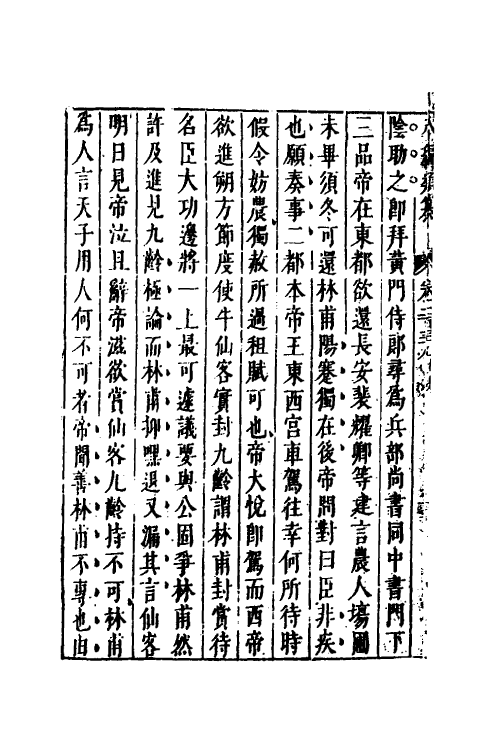 陰助之即拜黃門侍郎尋爲兵部尚書同中書門下
三品帝在東都欲還長安裴耀卿等建言農人場圃
未畢須冬可還林甫陽蹇獨在後帝問對曰臣非疾
也願奏事二都本帝王東西宮車駕往幸何所待時
假令妨農獨赦所過租賦可也帝大悅即駕而西帝
欲進朔方節度使牛仙客實封九齡謂林甫封賞待
名臣大功邊將一上最可遽議要與公固爭林甫然
許及進見九齡極論而林甫抑嘿退又漏其言仙客
明日見帝泣且辭帝滋欲賞仙客九齡持不可林甫
爲人言天子用人何不可者帝聞善林甫不專也由